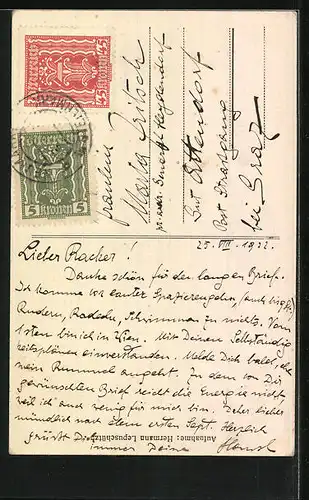 Fräulein
Maria Fritsch
Gut Ottendorf
Post Strassgang
bei Graz
25. VIII. 1922.
Lieber Racker!
Danke schön für den langen Brief.
Ich komme vor lauter Spazierengehn, (auch
Rudern, Radeln, Schwimmen zu nichts. Vom
1sten bin ich in Wien. Mit Deinen Selbständig
keitsplänen einverstanden. Melde Dich bald, ehe
mein Rummel angeht. Zu dem von Dir
gewünschten Brief reicht die Energie nicht
weil ich auch wenig für mich bin. Daher lieber
mündlich nach dem ersten Sept. Herzlich
grüsst Dich
immer Deine Hansl
Aufnahme: Hermann Lepuschütz
Österreich
45 Kronen 45
Österreich
5 Kronen 5